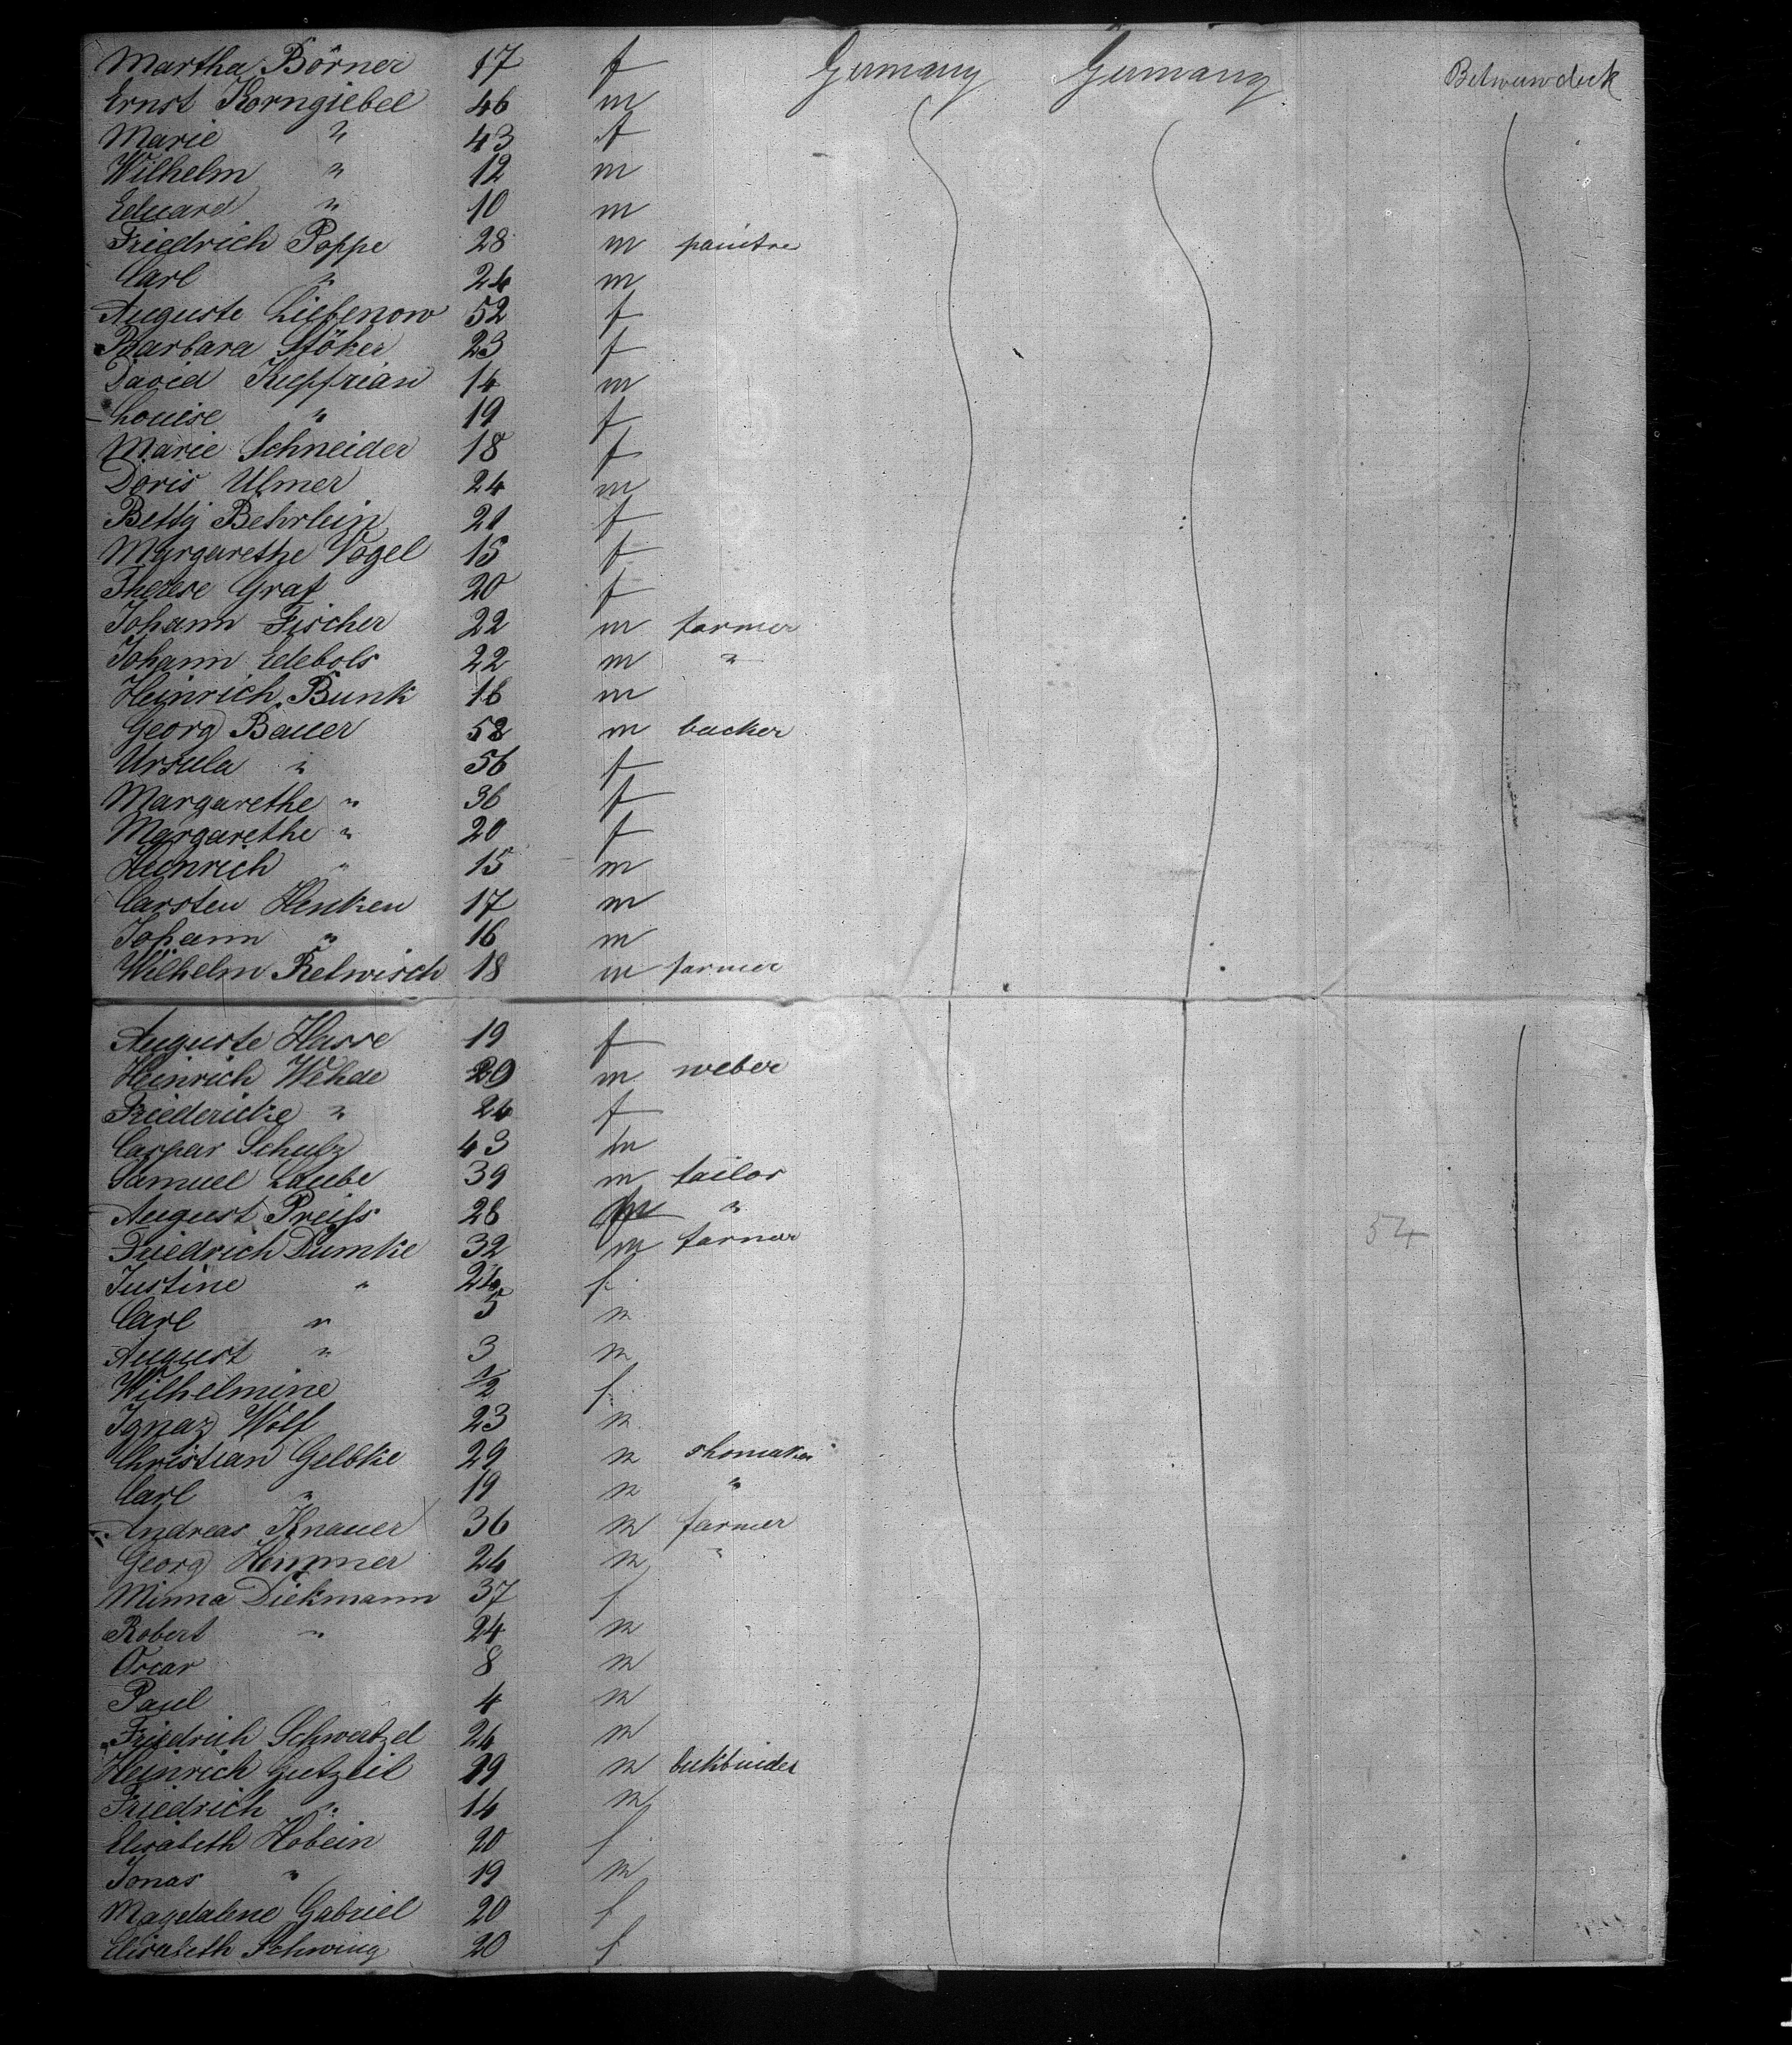 Martha Börner 17 f Germany Germany Betweendeck
Ernst Korngiebel 46 m
Marie " 43 f
Wilhelm " 12 m
Eduard " 10 m
Friedrich Poppe 28 m paintre
Carl " 24 m
Auguste Liebenow 52 f
Barbara Stöker 23 f
David Kupfrian 14 m
Louise " 19 f
Marie Schneider 18 f
Doris Ulmer 24 m
Betty Behrlein 21 f
Margarethe Vogel 15 f
Therese Graf 20 f
Johann Fischer 22 m farmer
Johann Edebols 22 m "
Heinrich Bunk 16 m
Georg Bauer 58 m backer
Ursula " 56 f
Margarethe " 36 f
Margarethe " 20 f
Heinrich " 15 m
Carsten Henken 17 m
Johann " 16 m
Wilhelm Retwisch 18 m farmer
Auguste Hasse 19 f
Heinrich Wehde 29 m weber
Friedericke " 24 f
Caspar Schulz 43 m
Samuel Laube 39 m tailor
August Preiss 28 m "
Friedrich Dumke 32 m farmer 54
Justine " 24 f
Carl " 5 m
August " 3 m
Wilhelmine 1/2 f
Ignaz Wolf 23 m
Christian Gelbke 29 m shomaker
Carl " 19 m "
Andreas Knauer 36 m farmer
Georg Hemmer 24 m "
Minna Diekmann 37 f
Robert " 24 m
Oscar 8 m
Paul 4 m
Friedrich Schwertzel 24 m
Heinrich Gutzeit 19 m bukbinder
Friedrich " 14 m
Elisabeth Hobein 20 f
Jonas " 19 m
Magdalene Gabriel 20 f
Elisabeth Schwing 20 f